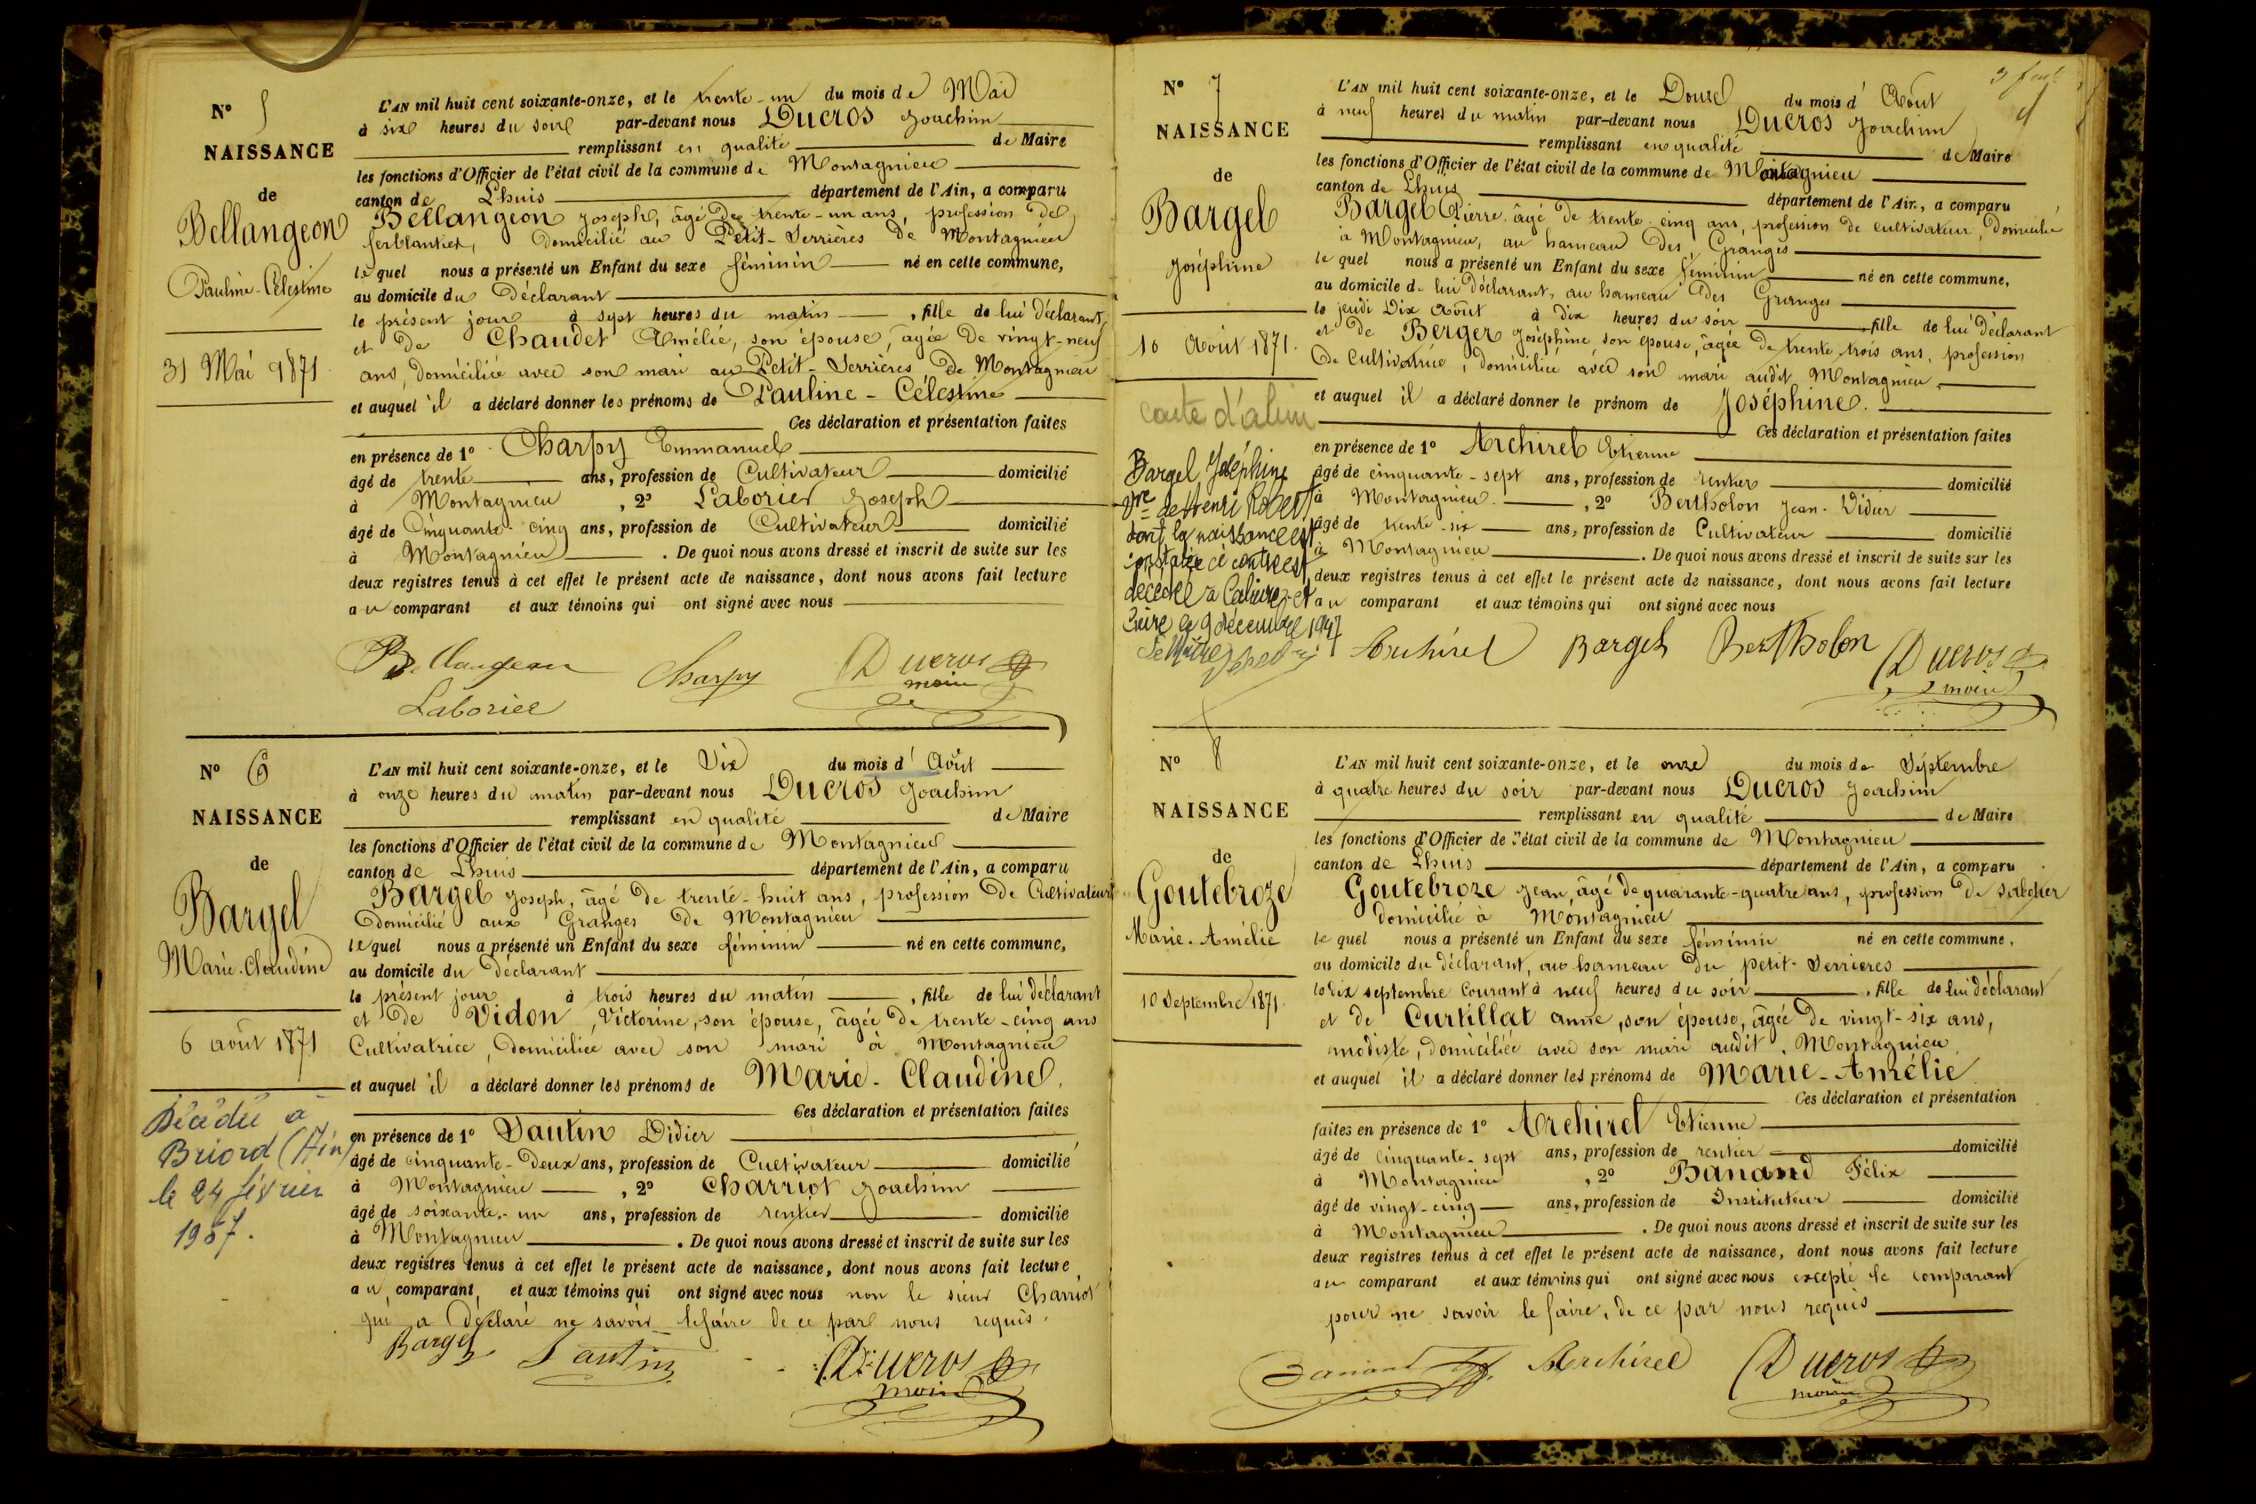 N° 5
NAISSANCE
de
Bellangeon
Pauline-Célestine
31 Mai 1871
L'AN mil huit cent soixante-onze, et le trente-un du mois de Mai
à six heures du soir par-devant nous Ducros Joachim
remplissant en qualité de Maire
les fonctions d'Officier de l'état civil de la commune de Montagnieu
canton de Lhuis département de l'Ain, a comparu
Bellangeon Joseph, âgé de trente-un ans, profession de
ferblantier, domicilié au Petit-Serrières de Montagnieu
lequel nous a présenté un Enfant du sexe féminin né en cette commune,
au domicile du déclarant
le présent jour à sept heures du matin, fille de lui déclarant
et de Chaudet Amélie, son épouse, âgée de vingt-neuf
ans, domiciliée avec son mari au Petit-Serrières de Montagnieu
et auquel il a déclaré donner les prénoms de Pauline-Célestine
Ces déclaration et présentation faites
en présence de 1° Charpy Emmanuel
âgé de trente ans, profession de Cultivateur domicilié
à Montagnieu, 2° Laborier Joseph
âgé de Cinquante-cinq ans, profession de Cultivateur domicilié
à Montagnieu. De quoi nous avons dressé et inscrit de suite sur les
deux registres tenus à cet effet le présent acte de naissance, dont nous avons fait lecture
au comparant et aux témoins qui ont signé avec nous
Bellangeon Charpy Ducros
maire
Laborier
N° 6
NAISSANCE
de
Bargel
Marie-Claudine
6 août 1871
Décédée à
Briord (Ain)
le 24 février
1957.
L'AN mil huit cent soixante-onze, et le Dix du mois d'Août
à onze heures du matin par-devant nous Ducros Joachim
remplissant en qualité de Maire
les fonctions d'Officier de l'état civil de la commune de Montagnieu
canton de Lhuis département de l'Ain, a comparu
Bargel Joseph, âgé de trente-huit ans, profession de Cultivateur
Domicilié aux Granges de Montagnieu
lequel nous a présenté un Enfant du sexe féminin né en cette commune,
au domicile du déclarant
le présent jour à trois heures du matin, fille de lui déclarant
et de Vidon, Victorine, son épouse, âgée de trente-cinq ans
Cultivatrice, domiciliée avec son mari à Montagnieu
et auquel il a déclaré donner les prénoms de Marie-Claudine.
Ces déclaration et présentation faites
en présence de 1° Dautin Didier
âgé de cinquante-deux ans, profession de Cultivateur domicilié
à Montagnieu, 2° Charriot Joachim
âgé de soixante-un ans, profession de rentier domicilié
à Montagnieu. De quoi nous avons dressé et inscrit de suite sur les
deux registres tenus à cet effet le présent acte de naissance, dont nous avons fait lecture
au comparant, et aux témoins qui ont signé avec nous non le sieur Charriot
qui a déclaré ne savoir le faire de ce par nous requis.
Bargel Dautin Ducros
maire
N° 7
NAISSANCE
de
Bargel
Joséphine
10 Août 1871.
carte d'alim
Bargel Joséphine
Vve de Henri Robert
dont la naissance est
constatée ci contre est
décédée à
Cuire le 9 décembre 1947
Le Maire
L'AN mil huit cent soixante-onze, et le Douze du mois d'Août
à neuf heures du matin par-devant nous Ducros Joachim
remplissant en qualité de Maire
les fonctions d'Officier de l'état civil de la commune de Montagnieu
canton de Lhuis département de l'Ain, a comparu
Bargel Pierre, âgé de trente-cinq ans, profession de cultivateur, domicilié
à Montagnieu, au hameau des Granges
lequel nous a présenté un Enfant du sexe féminin né en cette commune,
au domicile de lui déclarant, au hameau des Granges
le jeudi Dix Août à dix heures du soir, fille de lui déclarant
et de Berger Joséphine son épouse, âgée de trente trois ans, profession
de Cultivatrice, domiciliée avec son mari audit Montagnieu,
et auquel il a déclaré donner le prénom de Joséphine.
Ces déclaration et présentation faites
en présence de 1° Archirel Etienne
âgé de cinquante-sept ans, profession de rentier domicilié
à Montagnieu, 2° Bertholon Jean-Didier
âgé de trente-six ans, profession de Cultivateur domicilié
à Montagnieu. De quoi nous avons dressé et inscrit de suite sur les
deux registres tenus à cet effet le présent acte de naissance, dont nous avons fait lecture
au comparant et aux témoins qui ont signé avec nous
Archirel Bargel Bertholon Ducros
maire
N° 8
NAISSANCE
de
Goutebroze
Marie-Amélie
10 Septembre 1871.
L'AN mil huit cent soixante-onze, et le onze du mois de Septembre
à quatre heures du soir par-devant nous Ducros Joachim
remplissant en qualité de Maire
les fonctions d'Officier de l'état civil de la commune de Montagnieu
canton de Lhuis département de l'Ain, a comparu
Goutebroze Jean, âgé de quarante-quatre ans, profession de sabotier
domicilié à Montagnieu
lequel nous a présenté un Enfant du sexe féminin né en cette commune,
au domicile du déclarant, au hameau du petit-Serrières
le dix septembre courant à neuf heures du soir, fille de lui déclarant
et de Curtillat Anne, son épouse, âgée de vingt-six ans,
modiste, domiciliée avec son mari audit Montagnieu
et auquel il a déclaré donner les prénoms de Marie-Amélie
Ces déclaration et présentation
faites en présence de 1° Archirel Etienne
âgé de Cinquante-sept ans, profession de rentier domicilié
à Montagnieu, 2° Banand Félix
âgé de vingt-cinq ans, profession de Instituteur domicilié
à Montagnieu. De quoi nous avons dressé et inscrit de suite sur les
deux registres tenus à cet effet le présent acte de naissance, dont nous avons fait lecture
au comparant et aux témoins qui ont signé avec nous excepté le comparant
pour ne savoir le faire, de ce par nous requis
Banand Archirel Ducros
maire